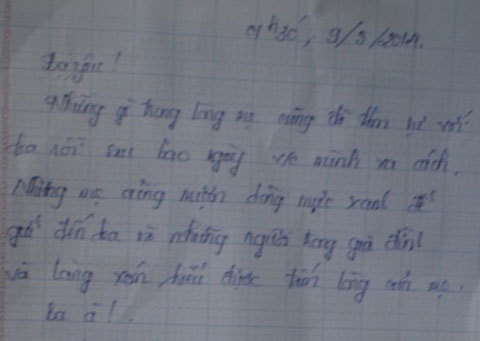 9h30', 9/3/2014.
Ba yêu!
Những gì trong lòng mẹ cũng đã tâm sự với
ba rồi sau bao ngày vc mình xa cách.
Nhưng mẹ cũng mượn dòng mực xanh để
gửi đến ba và những người trong gia đình
và làng xóm hiểu được tấm lòng của mẹ.
Ba à!